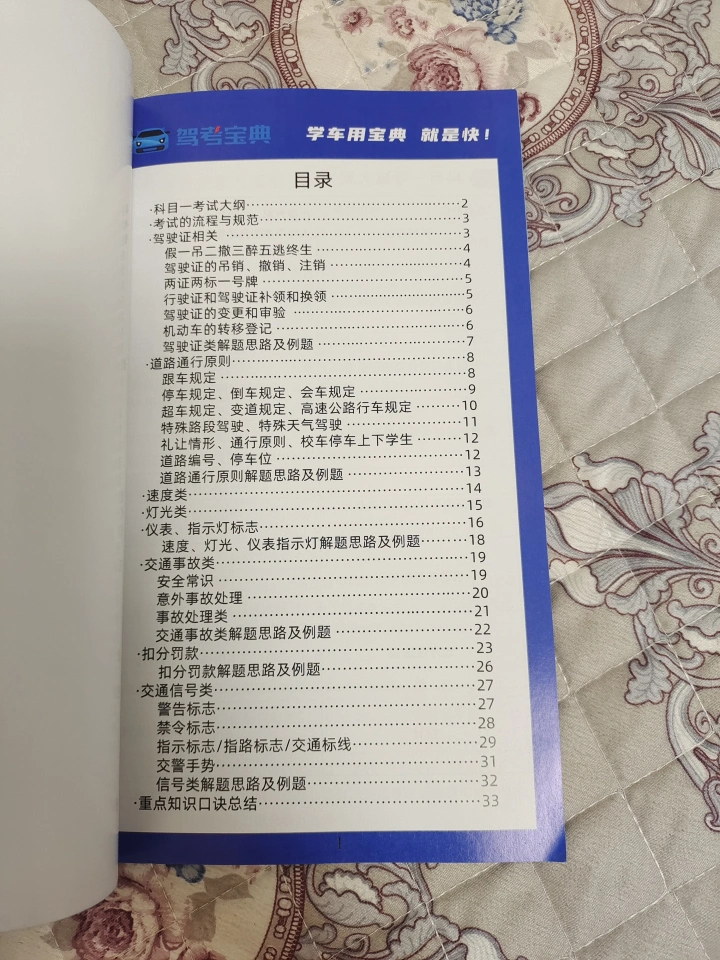 驾考宝典 学车用宝典 就是快！
目录
·科目一考试大纲································2
·考试的流程与规范································3
·驾驶证相关································3
假一吊二撤三醉五逃终生································4
驾驶证的吊销、撤销、注销································4
两证两标一号牌································5
行驶证和驾驶证补领和换领································5
驾驶证的变更和审验································6
机动车的转移登记································6
驾驶证类解题思路及例题································7
·道路通行原则································8
跟车规定································8
停车规定、倒车规定、会车规定································9
超车规定、变道规定、高速公路行车规定·········10
特殊路段驾驶、特殊天气驾驶································11
礼让情形、通行原则、校车停车上下学生·········12
道路编号、停车位································12
道路通行原则解题思路及例题································13
·速度类································14
·灯光类································15
·仪表、指示灯标志································16
速度、灯光、仪表指示灯解题思路及例题·········18
·交通事故类································19
安全常识································19
意外事故处理································20
事故处理类································21
交通事故类解题思路及例题································22
·扣分罚款································23
扣分罚款解题思路及例题································26
·交通信号类································27
警告标志································27
禁令标志································28
指示标志/指路标志/交通标线································29
交警手势································31
信号类解题思路及例题································32
·重点知识口诀总结································33
1